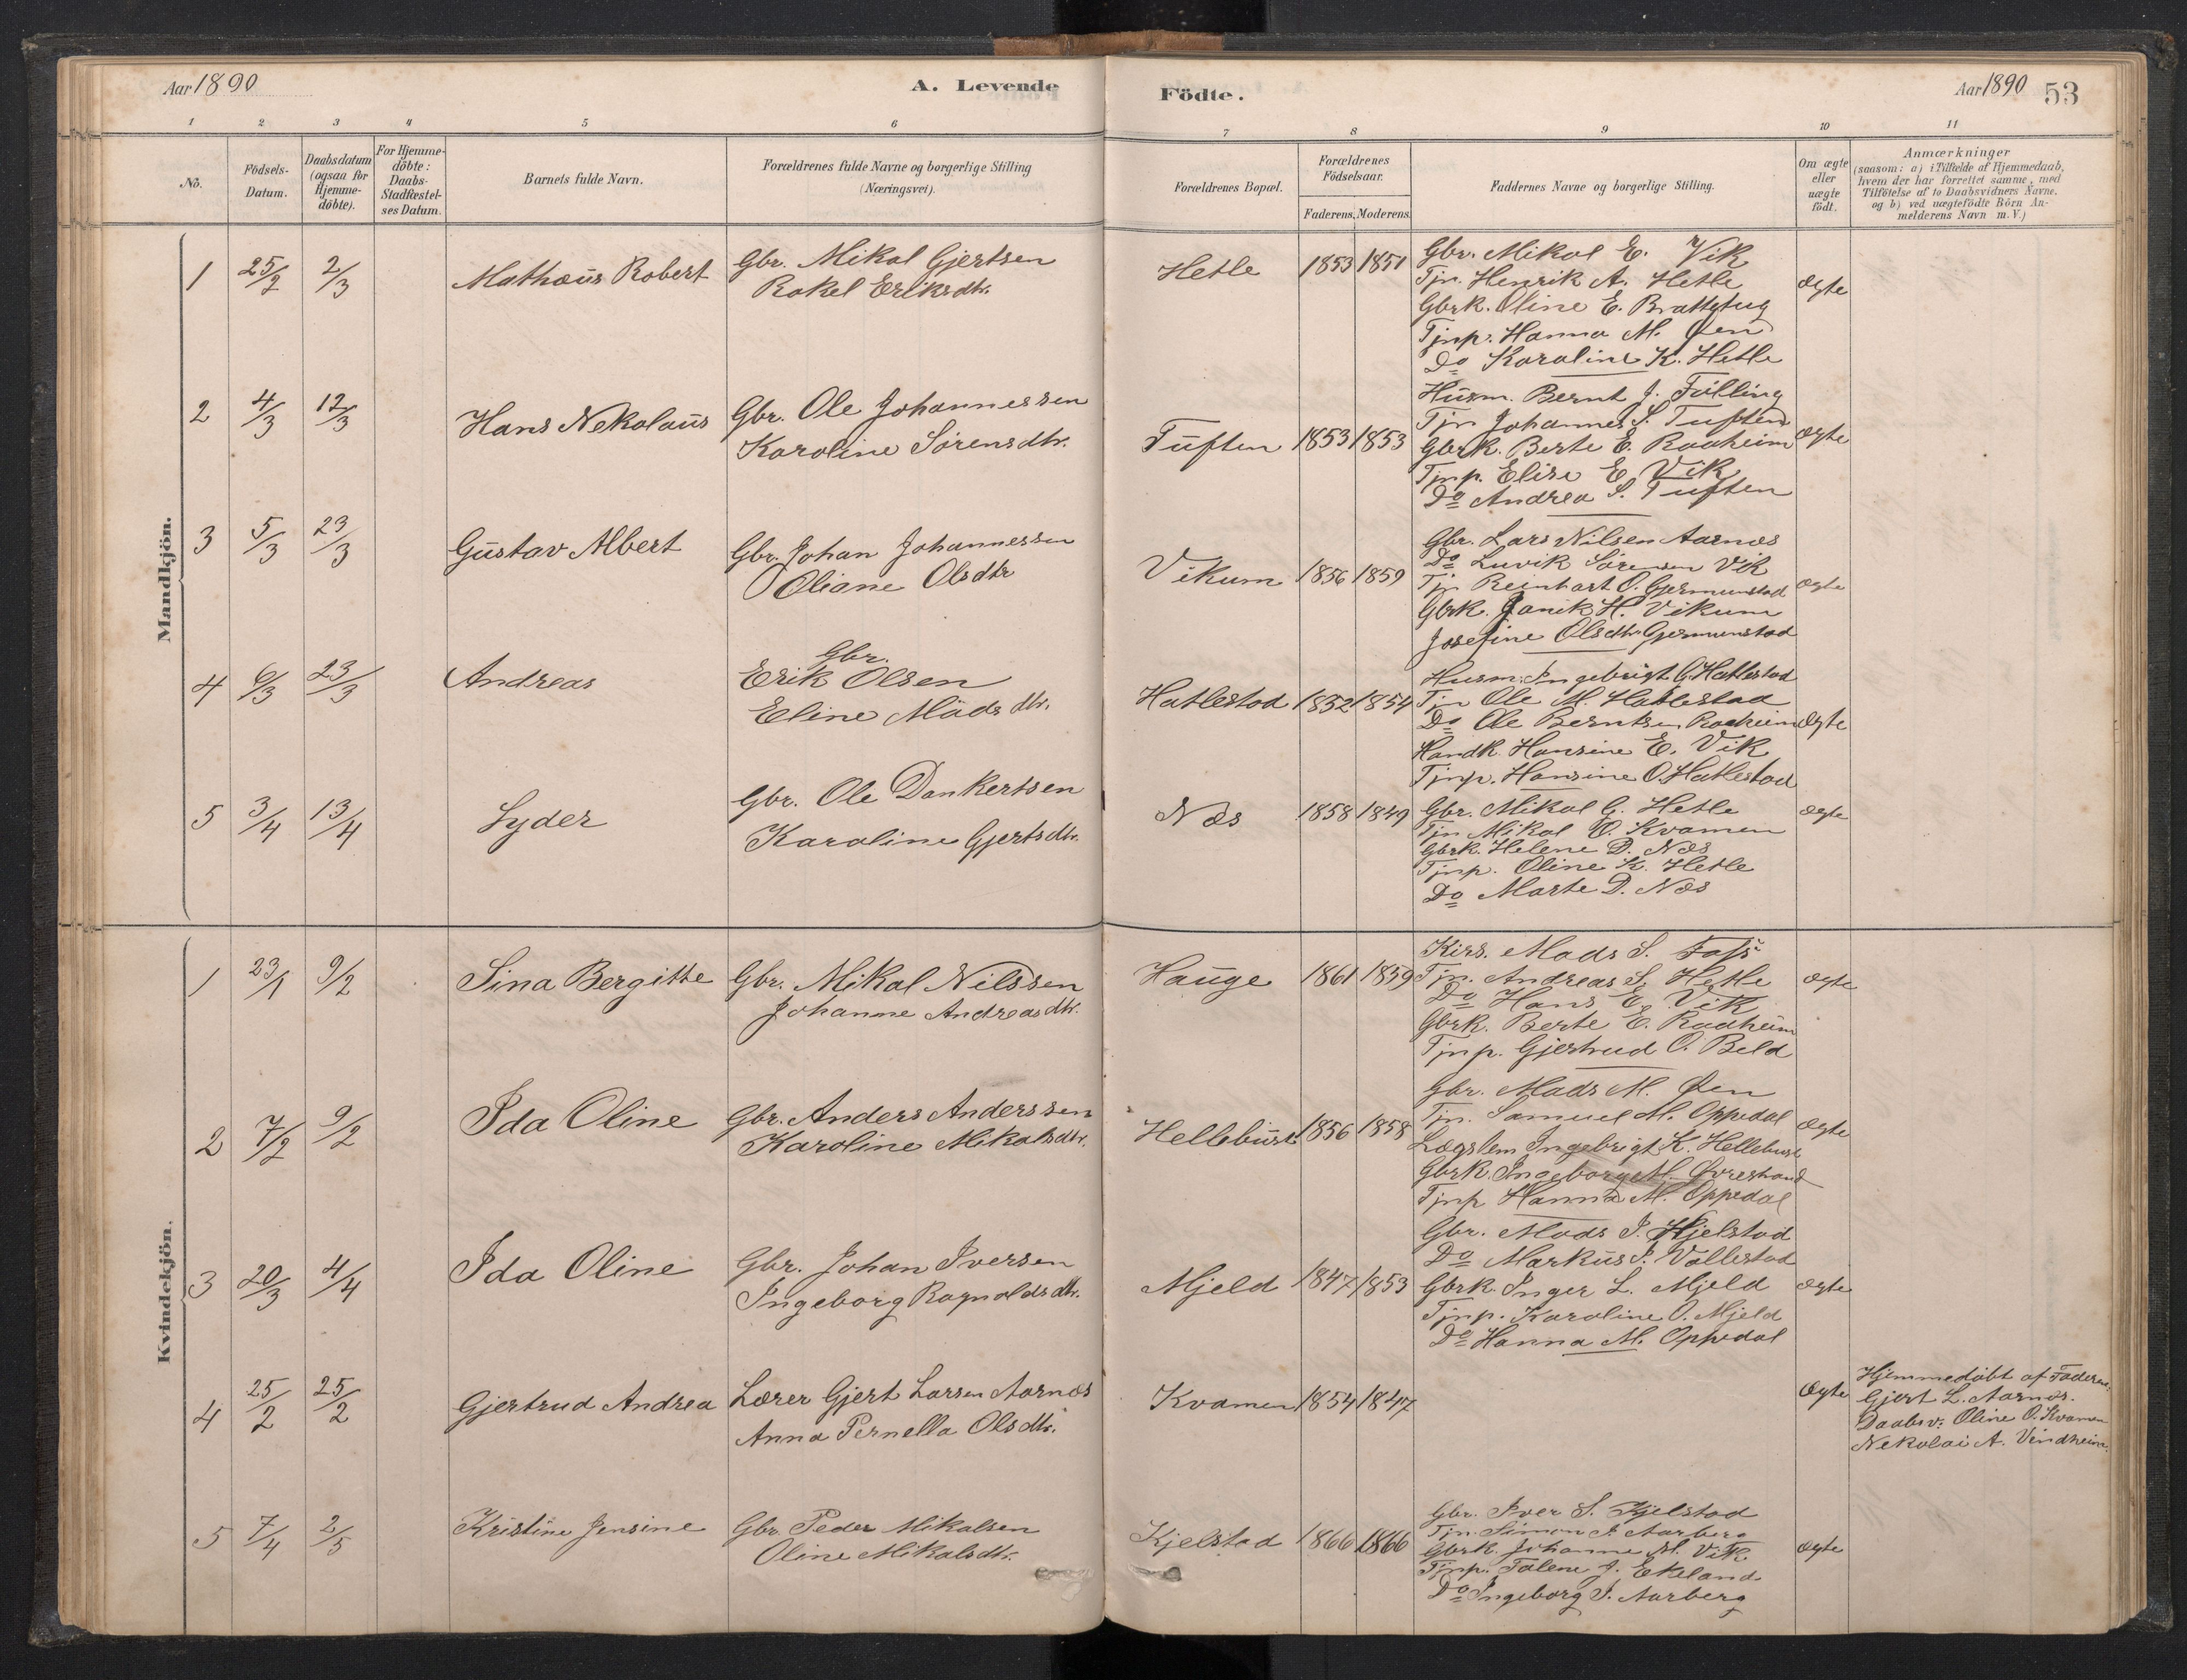 Aar 1890
A. Levende
Födte.
Aar 1890
53
1 2 3 4 5 6 7 8 9 10 11
No.
Födsels-
Datum.
Daabsdatum
(ogsaa for
Hjemme-
döbte).
For Hjemme-
döbte:
Daabs-
Stadfæstel-
ses Datum.
Barnets fulde Navn.
Forældrenes fulde Navne og borgerlige Stilling
(Næringsvei).
Forældrenes Bopæl.
Forældrenes
Födselsaar.
Faderens. Moderens.
Faddernes Navne og borgerlige Stilling.
Om ægte
eller
uægte
födt.
Anmærkninger
(saasom: a) i Tilfælde af Hjemmedaab,
hvem der har forrettet samme, med
Tilföielse af to Daabsvidners Navne.
og b) ved uægtefödte Börn An-
melderens Navn m.V.)
Mandkjön.
1 25/2 2/3 Mathæus Robert
Gbr. Mikal Gjertsen
Rakel Eriksdtr.
Hetle 1853 1851
Gbr. Mikal E. Vik
Tjn. Henrik A. Hetle
Gbrk. Oline E. Brattetug
Tjnp. Hanna M. Øen
Do Karoline K. Hetle
Ægte
2 4/3 12/3 Hans Nekolaus
Gbr. Ole Johannessen
Karoline Sörensdtr.
Tuften 1853 1853
Husm. Bernt J. Fulling
Tjn Johannes S. Tuften
Gbrk. Berte E. Raaheim
Tjnp. Elise E. Vik
Do Andrea S. Tuften
Ægte
3 5/3 23/3 Gustav Albert
Gbr. Johan Johannessen
Oliane Olsdtr
Vikum 1856 1859
Gbr. Lars Nilsen Aarnæs
Do Luvik Sörensen Vik
Tjn Reinhart O. Gjermunstad
Gbrk. Janik H. Vikum
Josefine Olsdtr Gjermunstad
Ægte
4 6/3 23/3 Andreas
Gbr.
Erik Olsen
Eline Madsdtr.
Hatlestad 1852 1854
Husm. Ingebrigt G. Hatlestad
Tjn Ole M. Hatlestad
Do Ole Berntsen Raaheim
Handk. Hansine E. Vik
Tjnp. Hansine O. Hatlestad
Ægte
5 3/4 13/4 Lyder
Gbr. Ole Dankertsen
Karoline Gjertsdtr.
Næs 1858 1849
Gbr. Mikal G. Hetle
Tjn Mikal O. Kvamen
Gbrk. Helene D. Næs
Tjnp. Oline K. Hetle
Do Marte D. Næs
Ægte
Kvindekjön.
1 23/1 9/2 Sina Bergitte
Gbr. Mikal Nilssen
Johanne Andreasdtr.
Hauge 1861 1859
Kirs. Mads S. Foss
Tjn. Andreas S. Hetle
Do Hans E. Vik
Gbrk. Berte E. Raaheim
Tjnp. Gjertrud O. Beld
Ægte
2 7/2 9/2 Ida Oline
Gbr. Anders Anderssen
Karoline Mikalsdtr.
Hellebust 1856 1858
Gbr. Mads M. Øen
Tjn. Samuel M. Oppedal
Lægslem Ingebrigt K. Hellebust
Gbrk. Ingeborg M. Øvrestrand
Tjnp Hanna M. Oppedal
Ægte
3 20/3 4/4 Ida Oline
Gbr. Johan Iversen
Ingeborg Ragnaldsdtr.
Mjeld 1847 1853
Gbr. Mads I. Hjelstad
Do Markus I. Vallestad
Gbrk. Inger L. Mjeld
Tjnp. Karoline O. Mjeld
Do Hanna M. Oppedal
Ægte
4 25/2 25/2 Gjertrud Andrea
Lærer Gjert Larsen Aarnæs
Anna Pernella Olsdtr.
Kvamen 1854 1847
Ægte
Hjemmedöbt af Faderen,
Gjert L. Aarnæs.
Daabsv: Oline O. Kvamen
Nekolai A. Vindheim.
5 7/4 2/5 Kristine Jensine
Gbr. Peder Mikalsen
Oline Mikalsdtr.
Kjelstad 1866 1866
Gbr. Iver S. Kjelstad
Tjn. Simon I. Aarberg
Gbrk. Johanne M. Vik
Tjnp. Talene J. Ekeland
Do Ingeborg I. Aarberg
Ægte